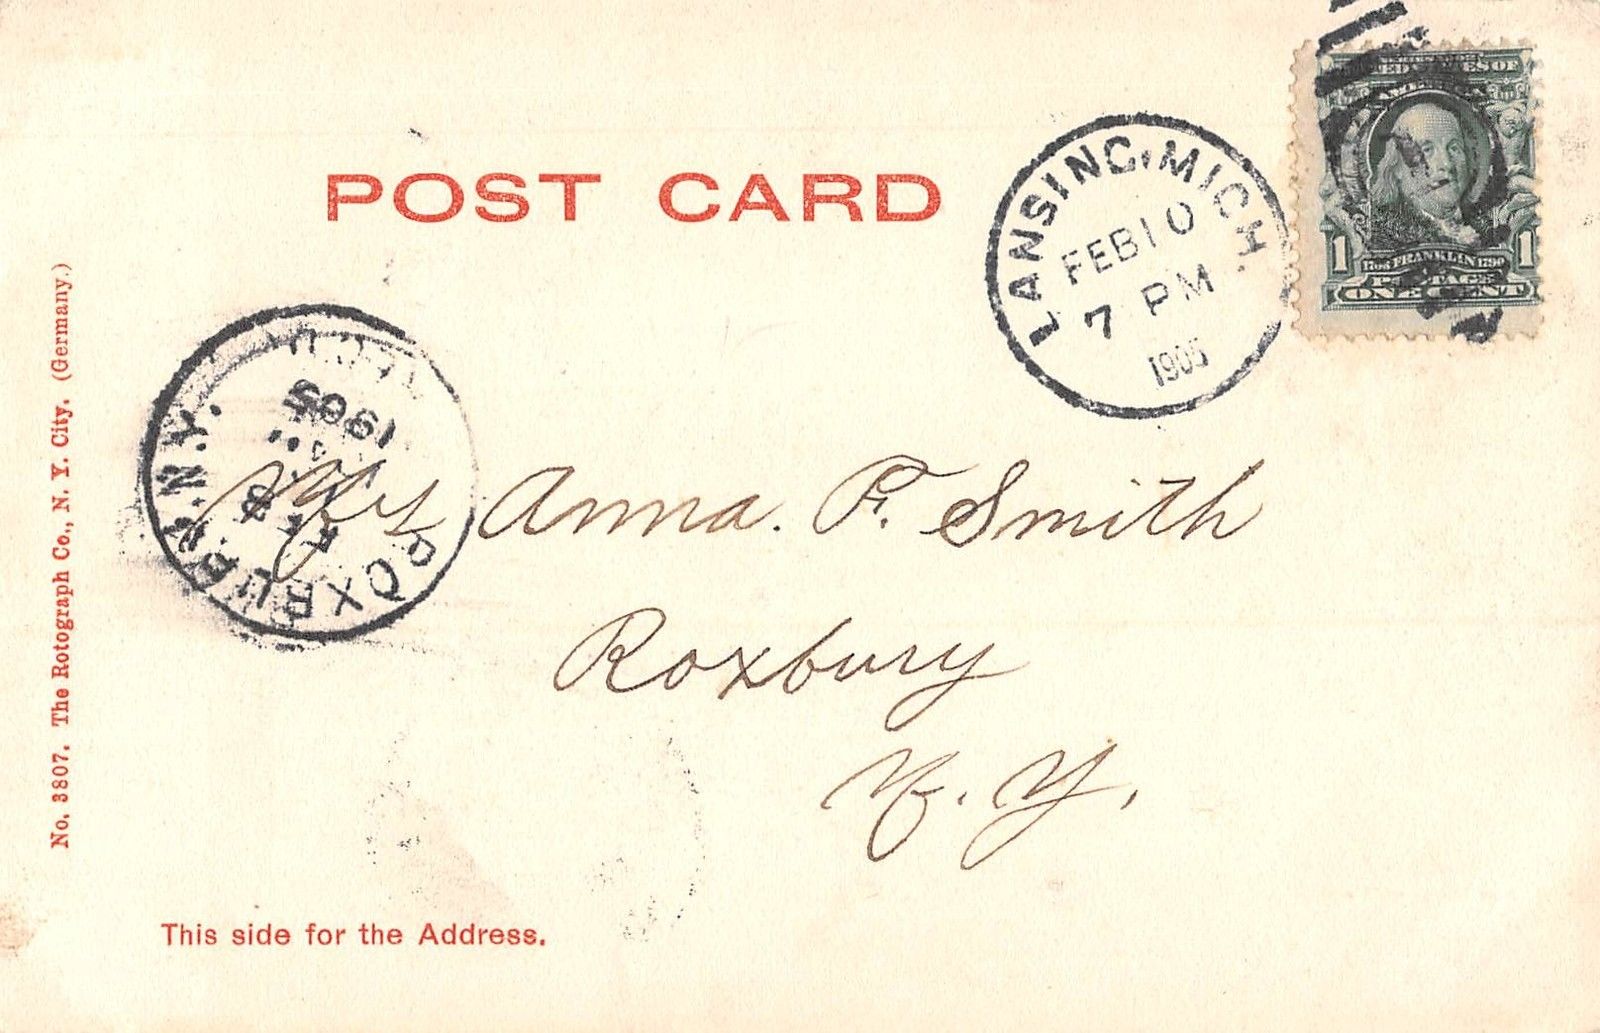 POST CARD
LANSING, MICH.
FEB 10
7 PM
1905
UNITED STATES OF
AMERICA
1 1708 FRANKLIN 1790 1
POSTAGE
ONE CENT
ROXBURY, N.Y.
1905
Anna. F. Smith
Roxbury
N. Y.
No. 3807. The Rotograph Co., N. Y. City. (Germany.)
This side for the Address.